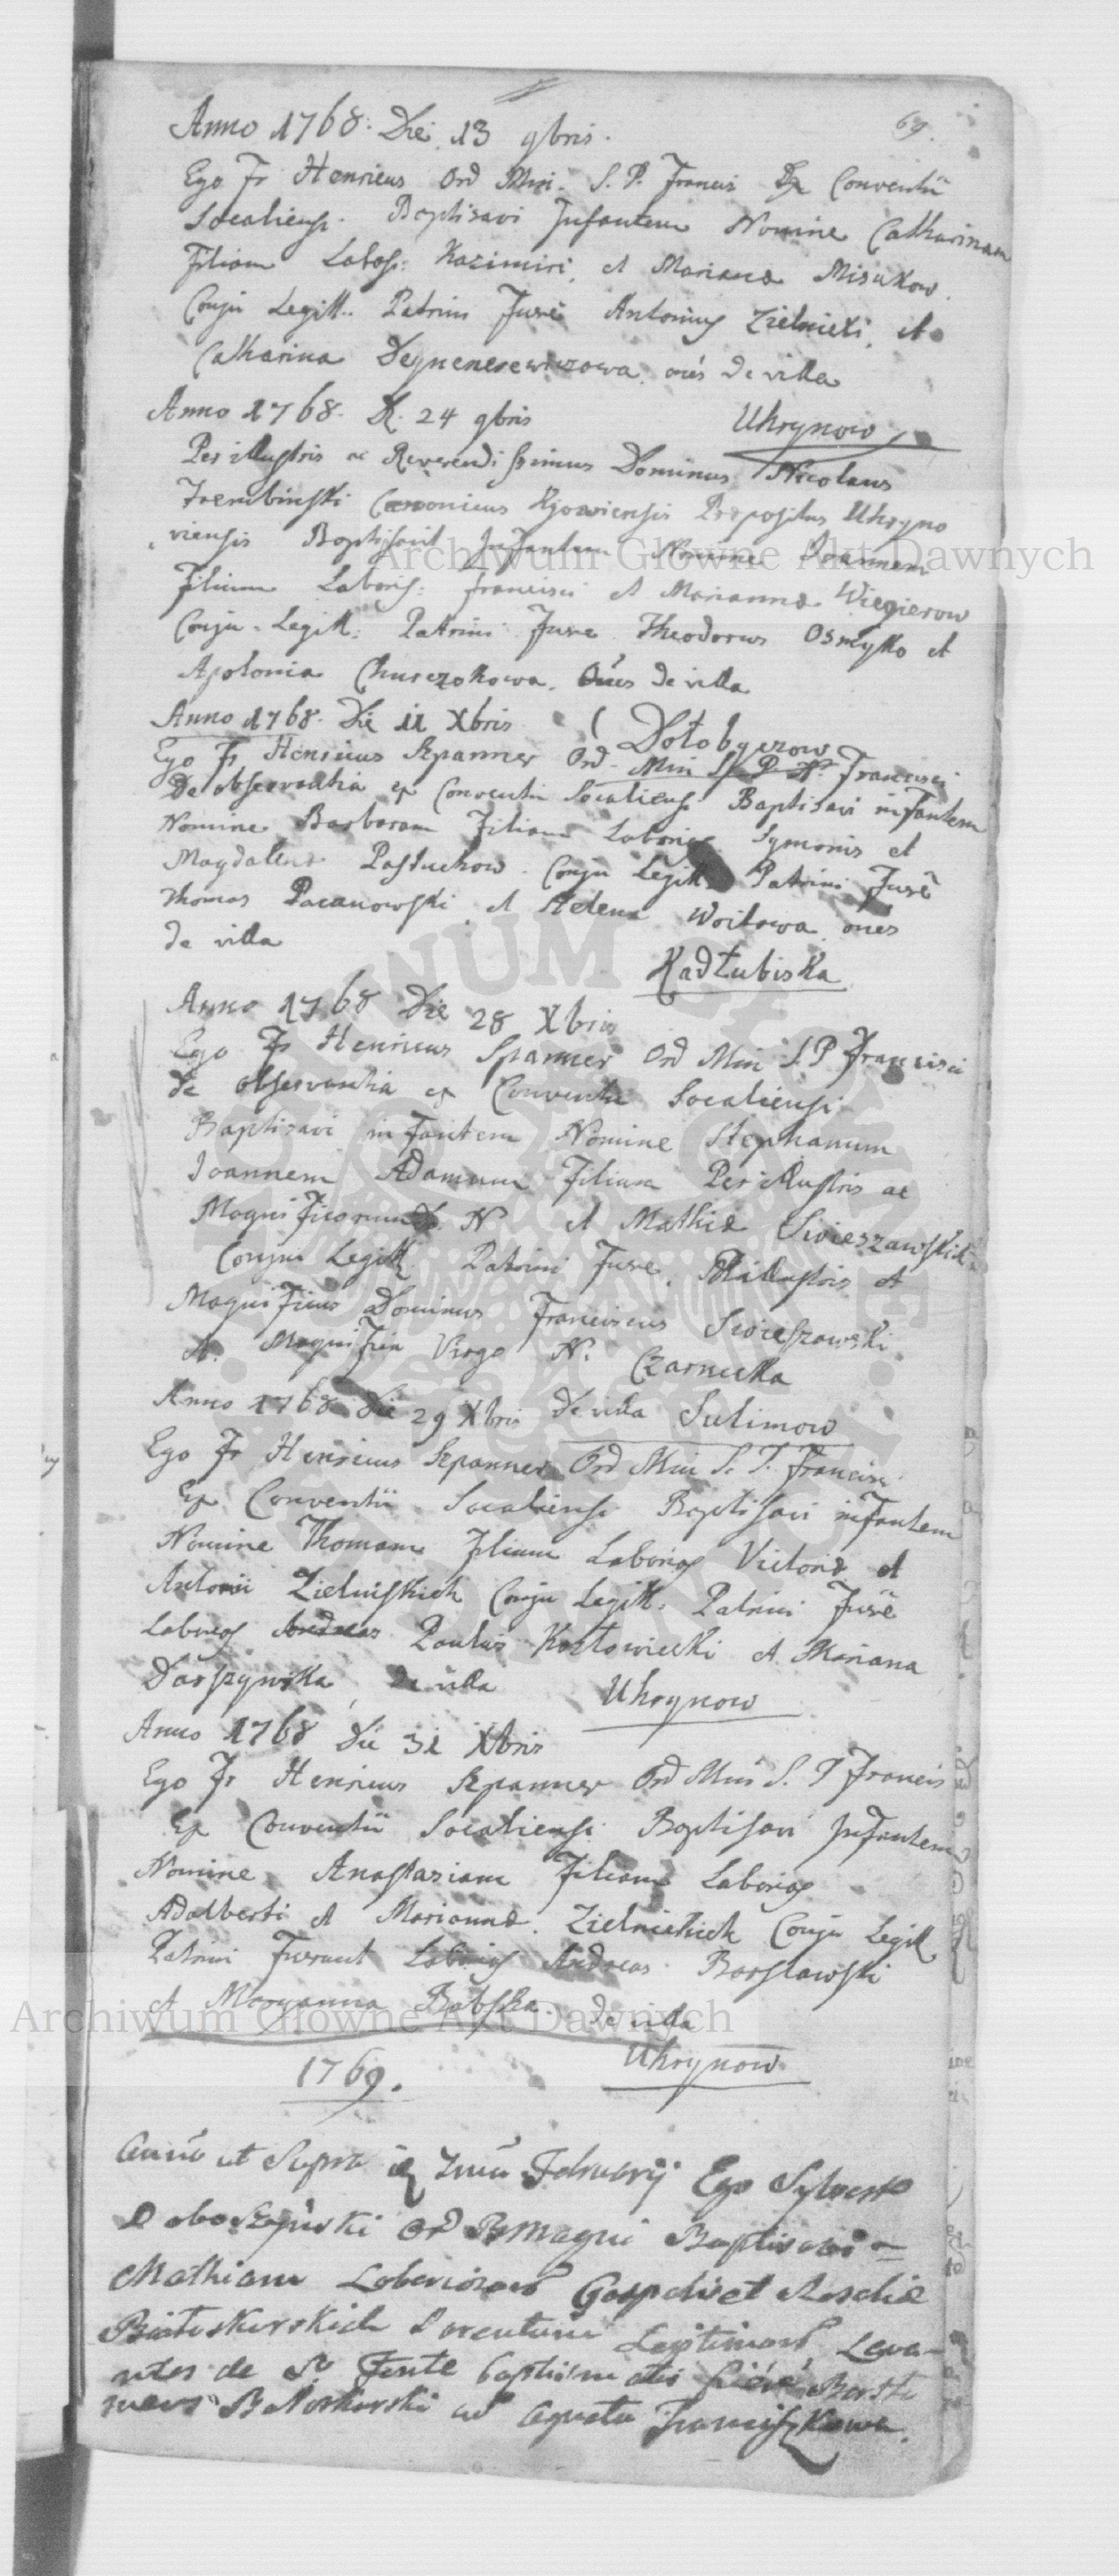 69.
Anno 1768. Die 13 9bris.
Ego Fr Henricus Ord Min. S. P. Francis Ex Conventû
Socaliensi. Baptisavi Infantem Nomine Catharinam
Filiam Labos: Kazimiri, et Mariana Misukow.
Conju Legitt. Patrini Fuere Antonius Zielnicki, et
Catharina oẽs de villa
Uhrynow
Anno 1768. D. 24 9bris
Per illustris ac Reverendissimus Dominus Nicolaus
Trembinski Canonicus Kijoviensis Prepositus Uhryno
viensis Baptisavit Infantem Nomine Joannem
Filium Laboris: Francisci et Marianna Wegierow
Conju. Legitt. Patrini Fuere Theodorus Osmytko et
Apolonia Churczokowa. Oẽs de villa
Dołobyczow
Anno 1768. Die 11 Xbris
Ego Fr Henricus Szpanner Ord. Min S. P. N. Francisci
De observantia ex Conventu Socaliensi Baptisavi infantem
Nomine Barbaram Filiam Laborios. Symonis et
Magdalena Pastuchow. Conju Legitt. Patrini Fuerẽ
Thomas Pacanowski et Helena Woitowa. oẽs
de villa
Kadłubiska
Anno 1768 Die 28 Xbris
Ego Fr Henricus Spanner Ord Min S. P Francisci
de observantia ex Conventu Socaliensi
Baptisavi infantem Nomine Stephanum
Joannem Adamum Filium Per illustris ac
Magnificorum D. N et Mathia Swieszawskich
Conju Legitt. Patrini Fuere. Perillustris et
Magnificus Dominus Franciscus Swieszawski
et. Magnifica Virgo N. Czarnecka
de villa Sulimow
Anno 1768 Die 29 Xbris
Ego Fr Henricus Szpanner Ord Min S. P. Francisci
Ex Conventû Socaliensi Baptisavi infantem
Nomine Thomam Filium Laborios Victoria et
Antonii Zielniskich Conju Legitt. Patrini Fuerẽ
Laborios Andreas Paulus Kozłowiecki et Mariana
Daszynska de villa
Uhrynow
Anno 1768 Die 31 Xbris
Ego Fr Henricus Szpanner Ord Min S. P Francis
Ex Conventû Socaliensi Baptisavi Infantem
Nomine Anastasiam Filiam Laborios
Adalberti et Marianna. Zielnickich Conju Legitt
Patrini Fuerunt Laborios Andreas Borsławski
et Maryanna Babska. de villa
Uhrynow
1769.
Anno ut Supra Februarij Ego Sylvester
Ord Magni Baptisavi
Mathiam Laboriosorũ et
Parentum Legitimorũ Leva-
ntes de So Fonte baptismatis
et Agneta Franciszkowa.
Archiwum Główne Akt Dawnych
Archiwum Główne Akt Dawnych